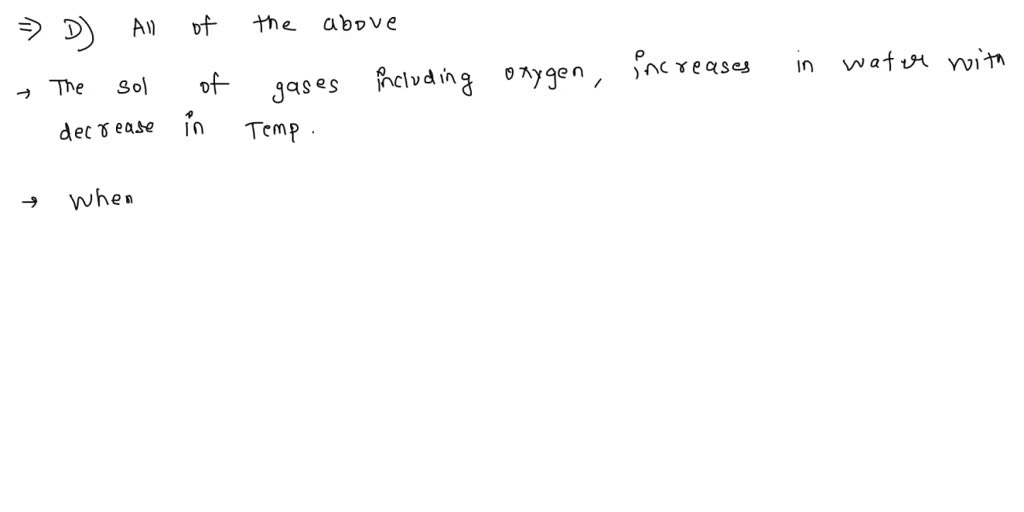 ⇒ D) All of the above
→ The sol of gases including oxygen, increases in water with
decrease in Temp.
→ When